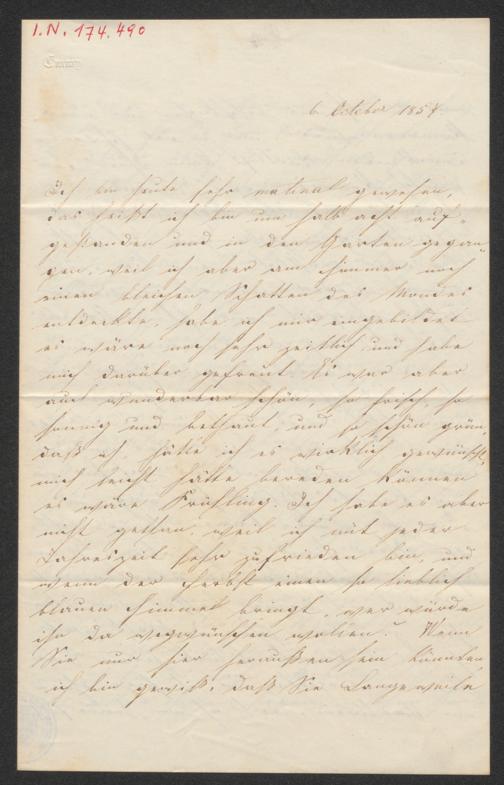 I.N. 174.490
6 October 1857.
Ich bin heute sehr matinal gewesen,
das heißt ich bin um halb acht auf-
gestanden und in den Garten gegan-
gen, weil ich aber am Himmel noch
einen bleichen Schatten des Mondes
entdeckte, habe ich mir eingebildet
es wäre noch sehr zeitlich und habe
mich darüber gefreut. Es war aber
auch wunderbar schön, so frisch, so
sonnig und bethaut, und so schön grün,
daß ich, hätte ich es wirklich gewünscht,
mich leicht hätte bereden können
es wäre Frühling. Ich habe es aber
nicht gethan, weil ich mit jeder
Jahreszeit sehr zufrieden bin, und
wenn der Herbst einen so lieblich
blauen Himmel bringt, wer würde
ihn da wegwünschen wollen? Wenn
Sie nur hier heraußen sein könnten,
ich bin gewiß, daß Sie Langeweile